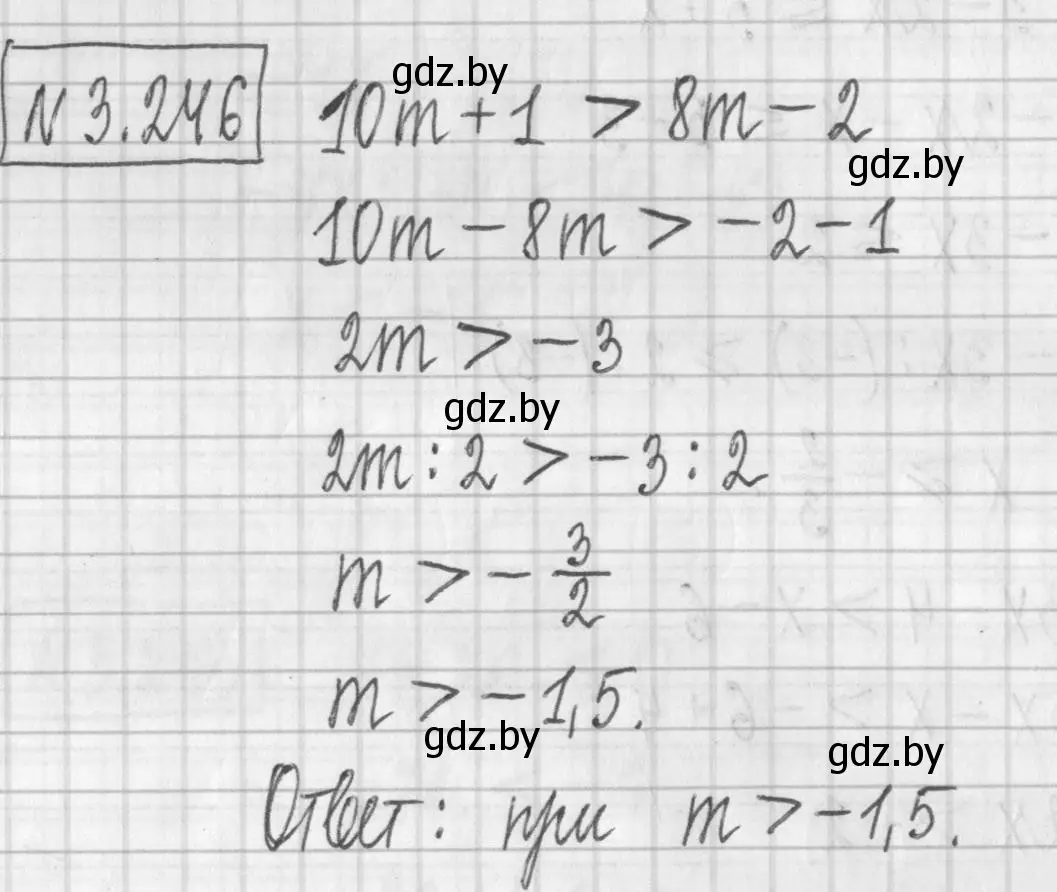 gdz.by
N 3.246 10m + 1 > 8m - 2
gdz.by
10m - 8m > -2 - 1
2m > -3
gdz.by
2m : 2 > -3 : 2
m > - 3/2
m > -1,5.
gdz.by
gdz.by
Ответ: при m > -1,5.